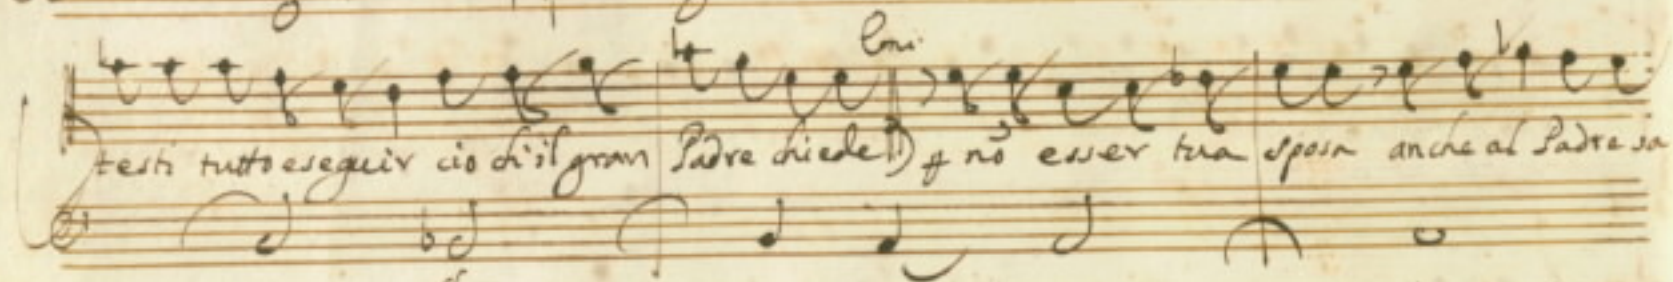 Coni.
testi tutto eseguir cio ch'il gran Padre chiede) ꝑ nō esser tua sposa anche al Padre sa